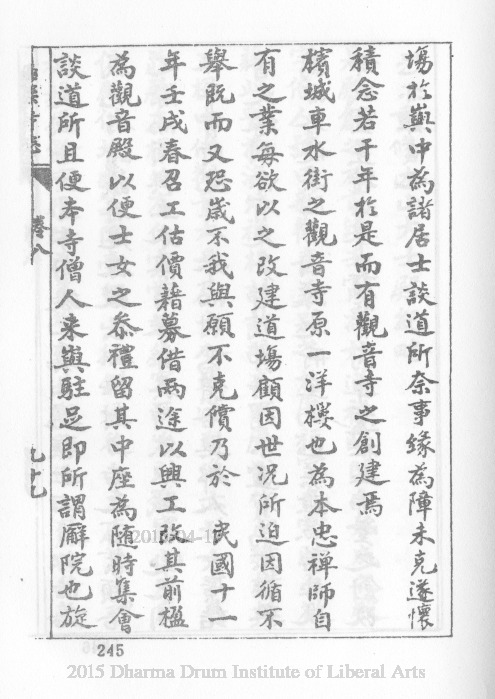 塲於嶼中為諸居士談道所奈事緣為障未克遂懷
積念若干年於是而有觀音寺之創建焉
檳城車水街之觀音寺原一洋樓也為本忠禪師自
有之業每欲以之改建道塲顧因世况所迫因循不
舉既而又恐歲不我與願不克償乃於　民國十一
年壬戌春召工估價藉募借兩途以興工改其前楹
為觀音殿以便士女之叅禮留其中座為随時集會
談道所且便本寺僧人来嶼駐足即所謂廨院也旋
卷八
九十九
245
2015 Dharma Drum Institute of Liberal Arts